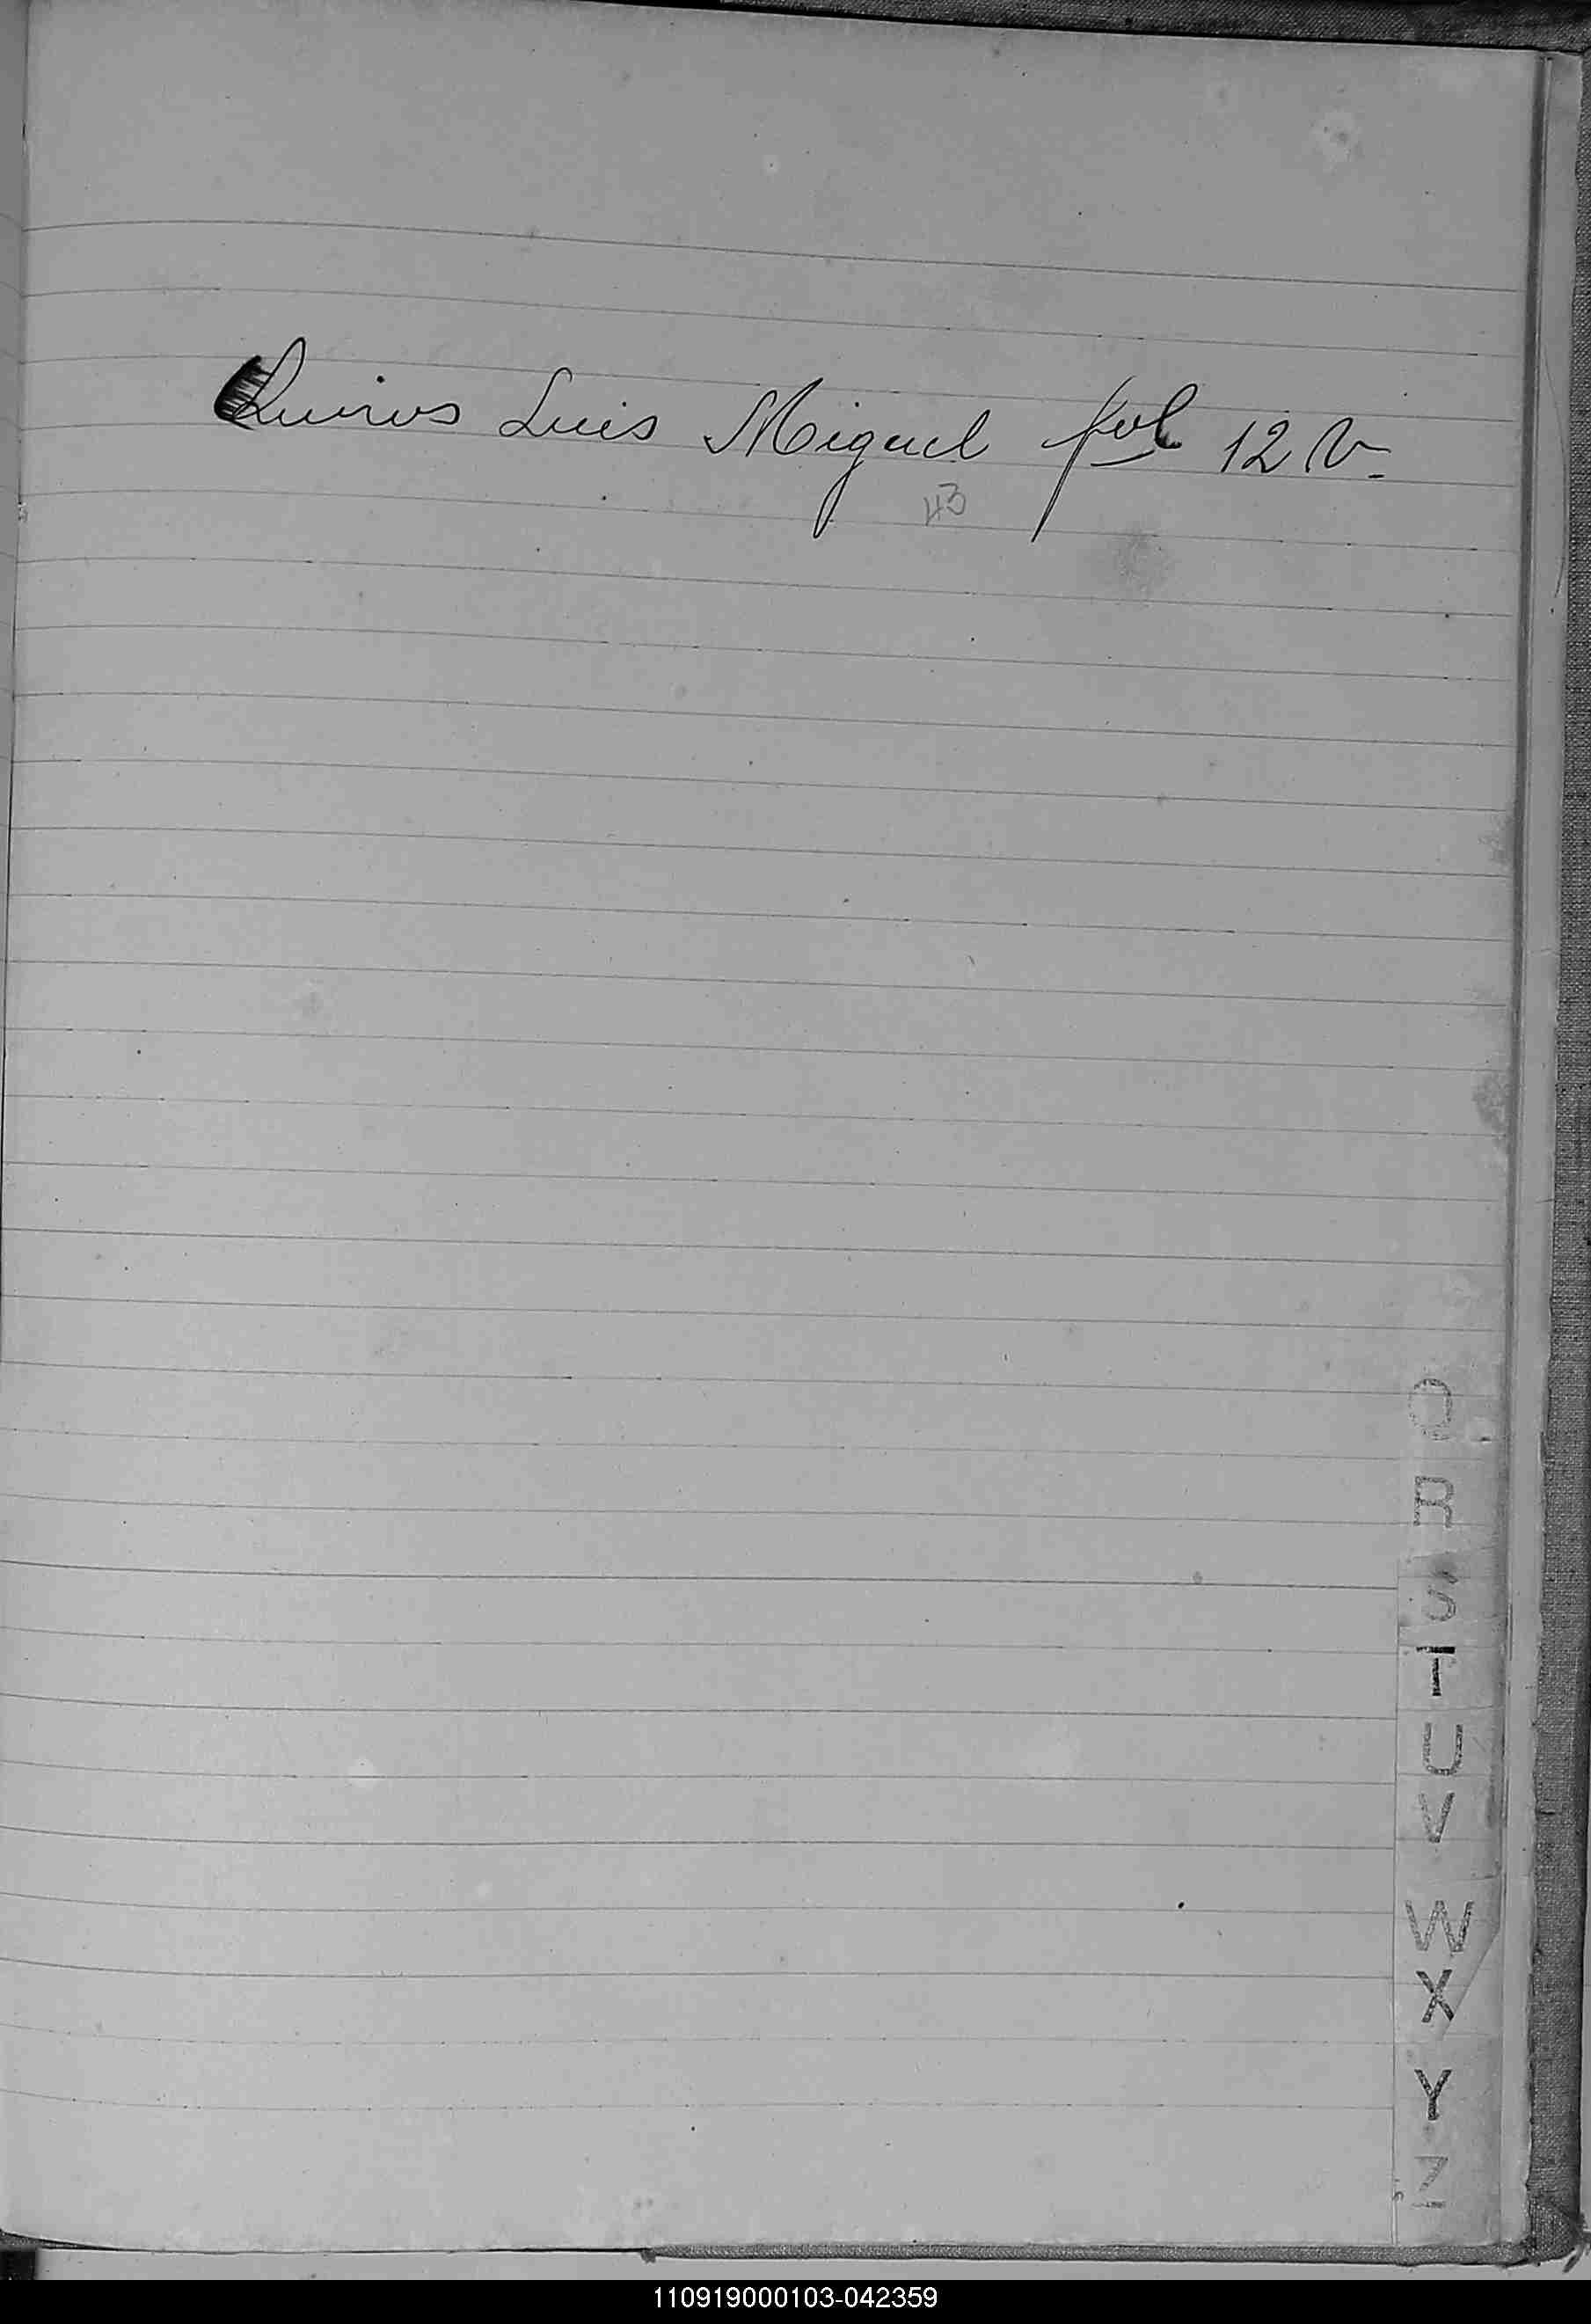 Quiros Luis Miguel fol 12 V.
43
Q
R
S
T
U
V
W
X
Y
Z
110919000103-042359